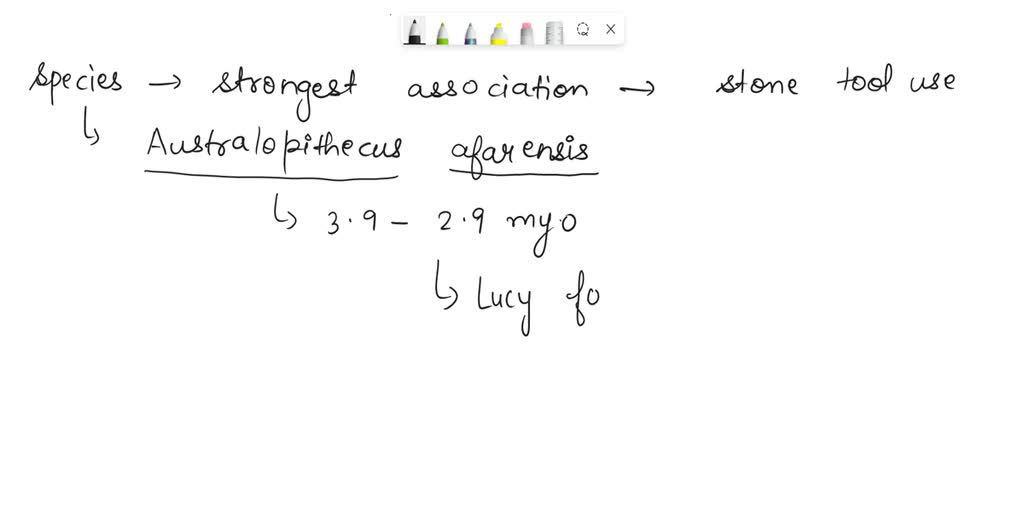 species → strongest association → stone tool use
↳ Australopithecus afarensis
↳ 3.9 - 2.9 myo
↳ Lucy fo